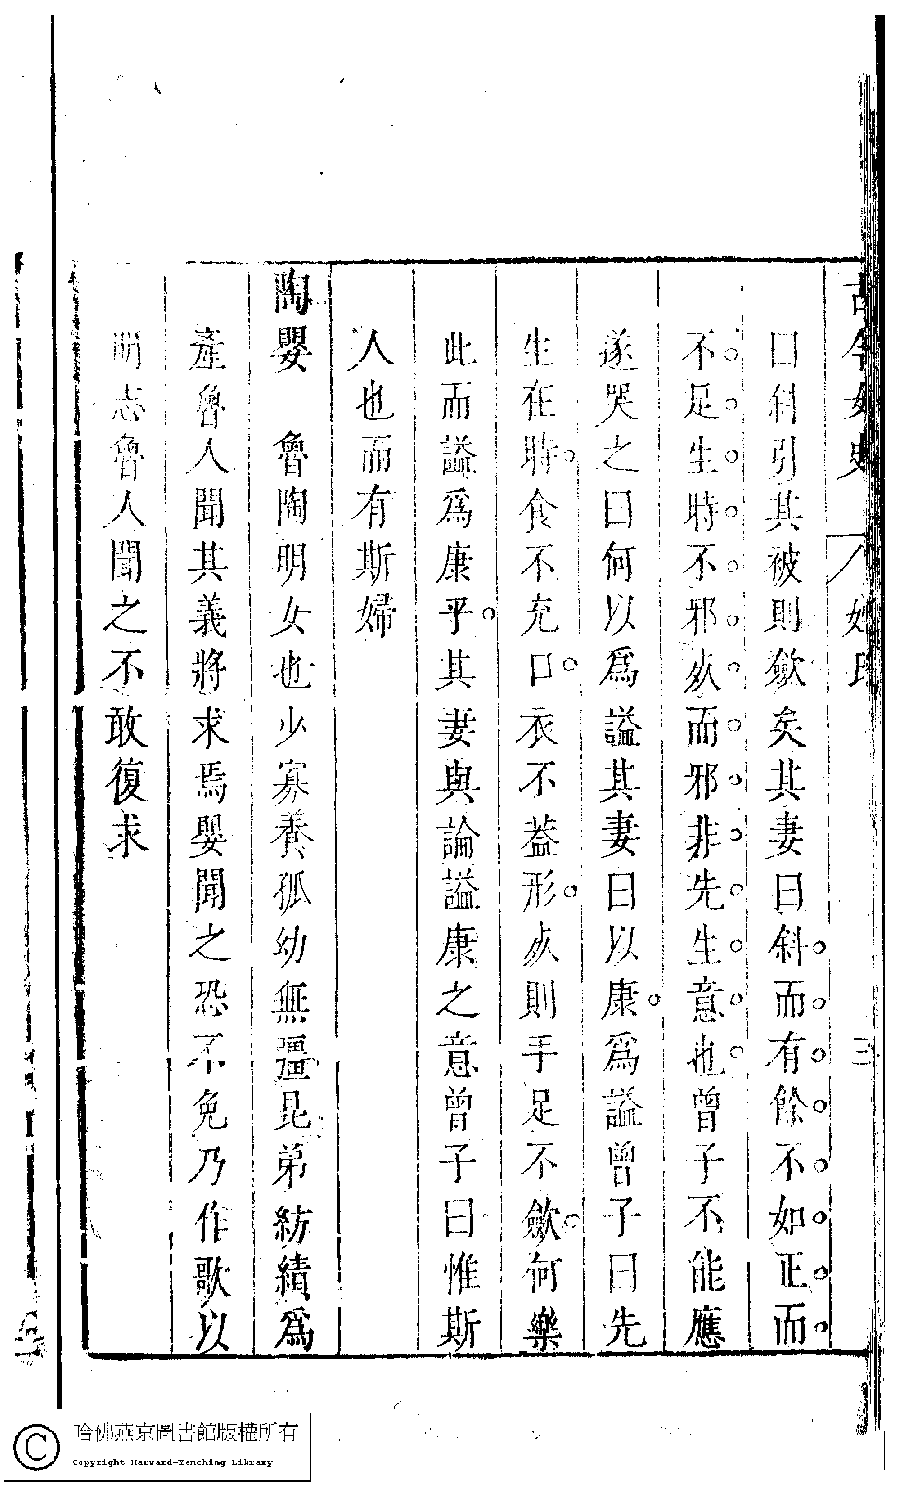 古今女史 八 姓氏 三
曰斜引其被則歛矣其妻曰斜而有餘不如正而
不足生時不邪死而邪非先生意也曾子不能應
遂哭之曰何以爲謚其妻曰以康爲謚曾子曰先
生在時食不充口衣不葢形死則手足不歛何樂
此而謚爲康乎其妻與論謚康之意曾子曰惟斯
人也而有斯婦
陶嬰 魯陶明女也少寡養孤幼無彊昆弟紡績爲
產魯人聞其義將求焉嬰聞之恐不免乃作歌以
明志魯人聞之不敢復求
哈佛燕京圖書館版權所有
Copyright Harvard-Yenching Library